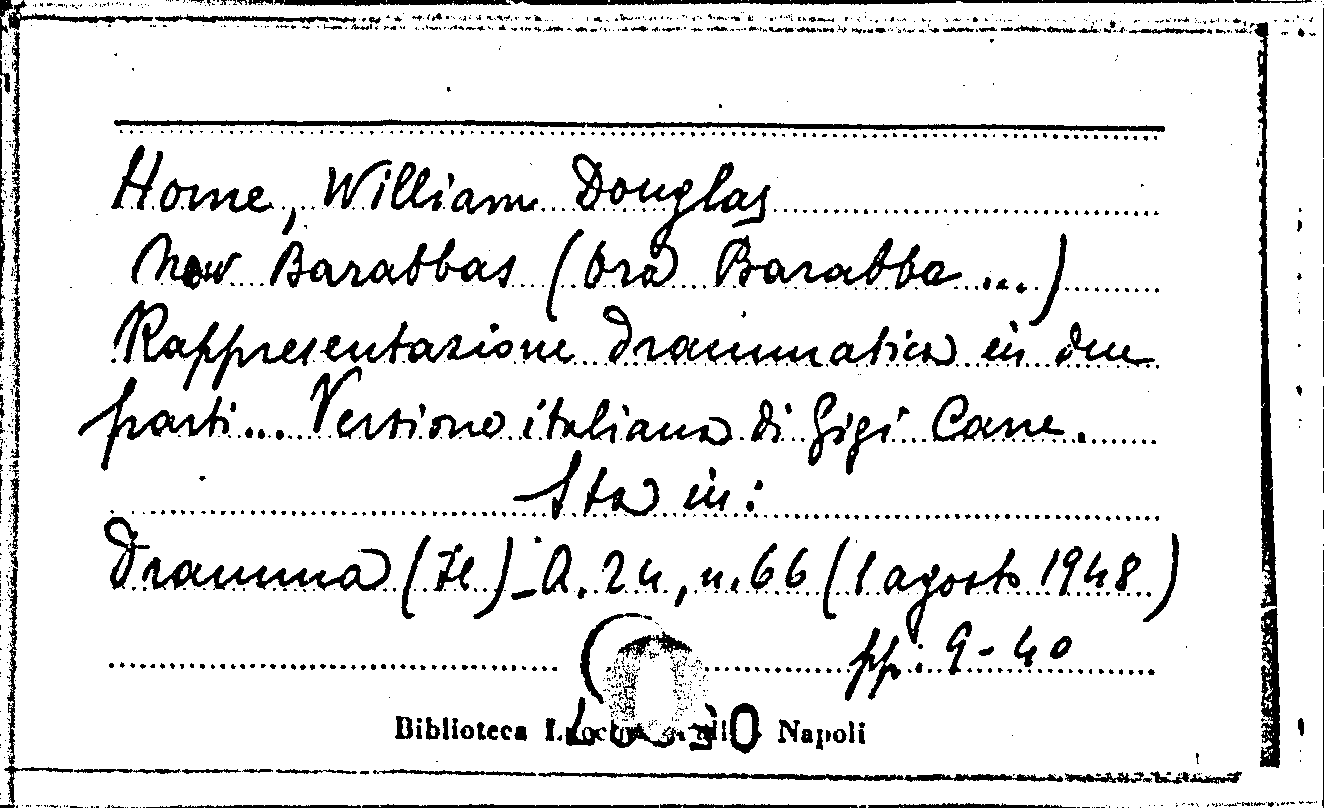 Home, William Douglas
Now Barabbas (Ora Barabba ...)
Rappresentazione drammatica in due
parti... Versione italiana di Gigi Cane.
Sta in:
Dramma (Il) - A. 24, n. 66 (1 agosto 1948)
pp. 9-40
Biblioteca Napoli